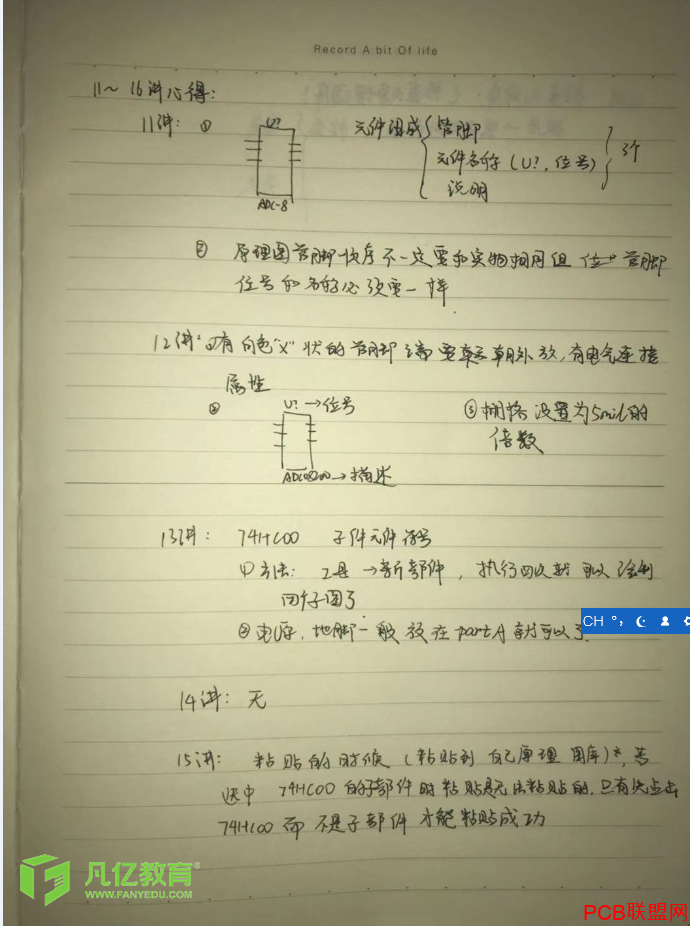 Record A bit Of life
11~16讲心得:
11讲: ① U? 元件组成{ 管脚
元件名称(U?,位号) } 3个
说明
ADC-8
② 原理图管脚顺序不一定要和实物相同但 位 管脚
位号和名称必须要一样.
12讲: ①有白色"x"状的管脚端要 朝外放,有电气连接
属性
② U? →位号 ③栅格设置为5mil的
倍数
→描述
13讲: 74HC00 子件元件符号
①方法: 工具→新部件, 执行四次就可以绘制
四个子图了
②电源,地脚一般放在partA就可以了
CH
14讲: 无
15讲: 粘贴的时候(粘贴到自己原理图库), 若
选中 74HC00的子部件时粘贴是无法粘贴的.只有先点击
74HC00而不是子部件才能粘贴成功
凡亿教育®
WWW.FANYEDU.COM
PCB联盟网